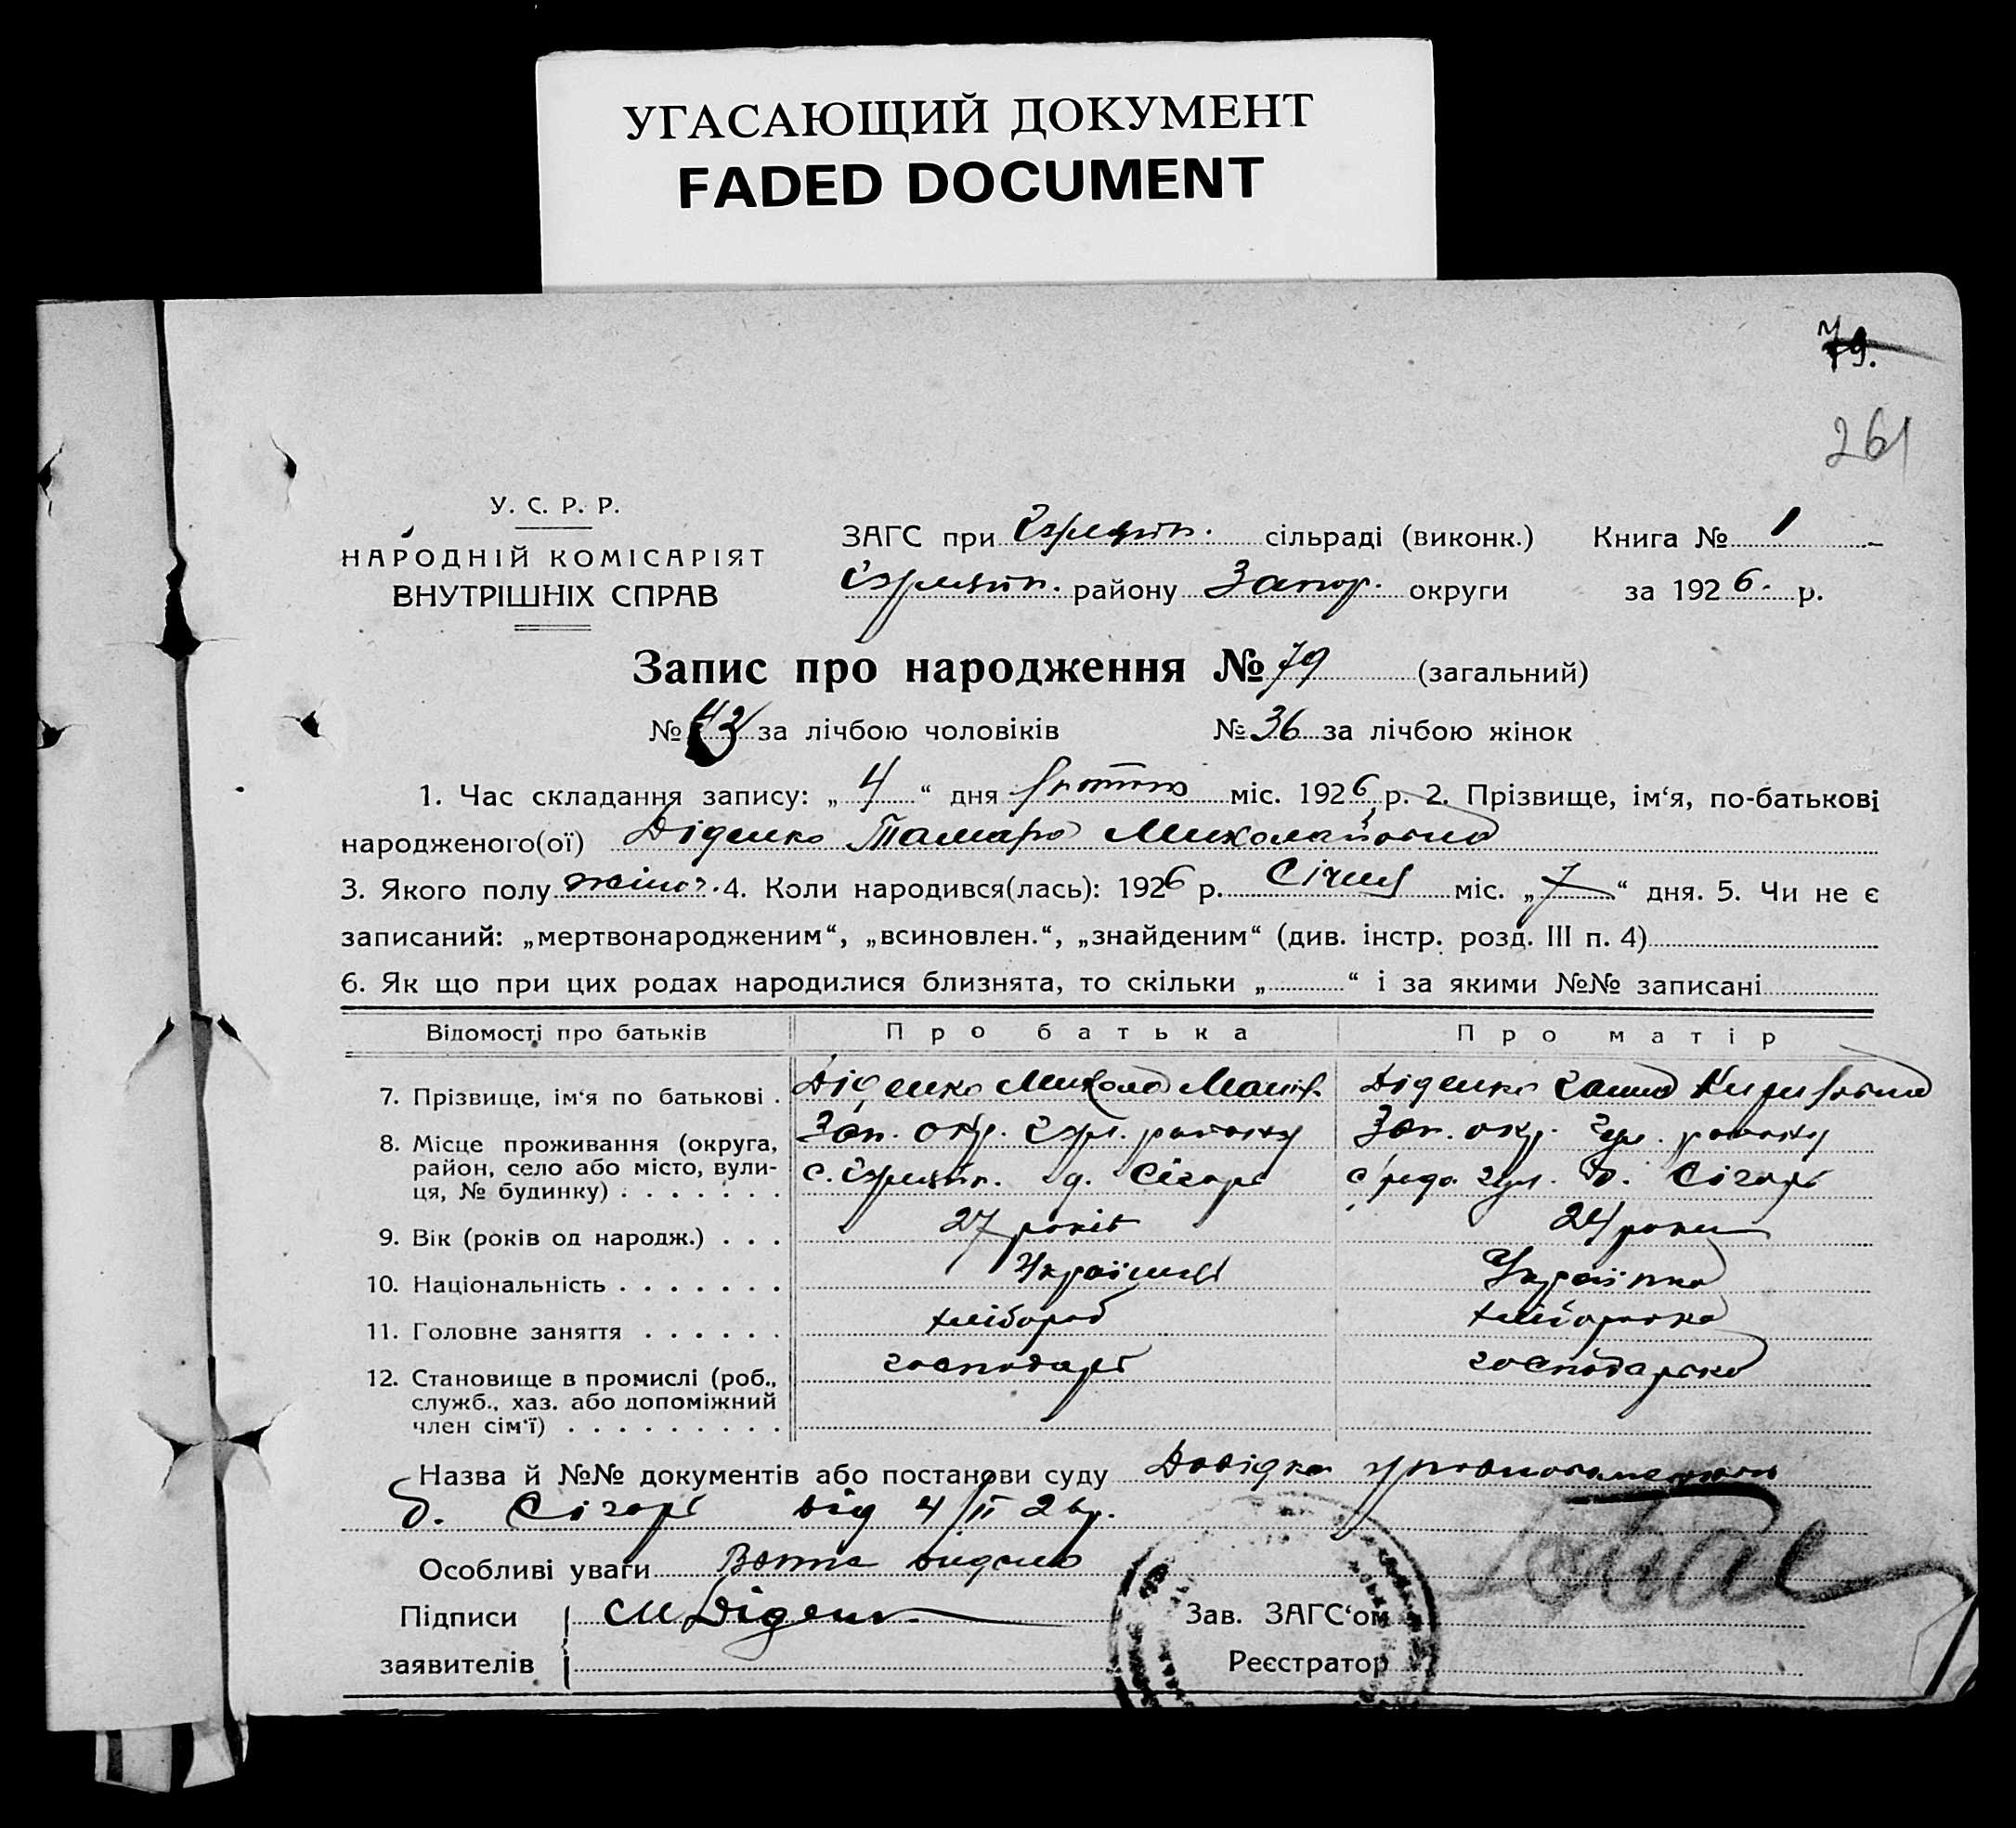 УГАСАЮЩИЙ ДОКУМЕНТ
FADED DOCUMENT
79.
261
У. С. Р. Р.
НАРОДНІЙ КОМІСАРІЯТ
ВНУТРІШНІХ СПРАВ
ЗАГС при сільраді (виконк.) Книга № 1
району Запор. округи за 1926 р.
Запис про народження № 79 (загальний)
№ за лічбою чоловіків № 36 за лічбою жінок
1. Час складання запису: „ 4 “ дня лютого міс. 1926 р. 2. Прізвище, ім‘я, по-батькові
народженого(ої) Діденко Тамара Миколаївна
3. Якого полу жіноч. 4. Коли народився(лась): 1926 р. Січня міс. „ 7 “ дня. 5. Чи не є
записаний: „мертвонародженим“, „всиновлен.“, „знайденим“ (див. інстр. розд. III п. 4)
6. Як що при цих родах народилися близнята, то скільки „ “ і за якими №№ записані
Відомості про батьків Про батька Про матір
7. Прізвище, ім‘я по батькові . Діденко Микола Діденко Ганна Кирилівна
8. Місце проживання (округа, Зап. окр. району Зап. окр. району
район, село або місто, вули-
ця, № будинку) . . . . . . . с. Січарь Січарь
9. Вік (років од народж.) . . . 27 років 24 роки
10. Національність . . . . . . . Українец Українка
11. Головне заняття . . . . . . хлібороб хліборобка
12. Становище в промислі (роб., господарь господарка
служб., хаз. або допоміжний
член сім‘ї) . . . . . . . . .
Назва й №№ документів або постанови суду Довідка уповноваженого
Січарь від 4/II 26 р.
Особливі уваги видано
Підписи М Діденко Зав. ЗАГС‘ом
заявителів Реєстратор